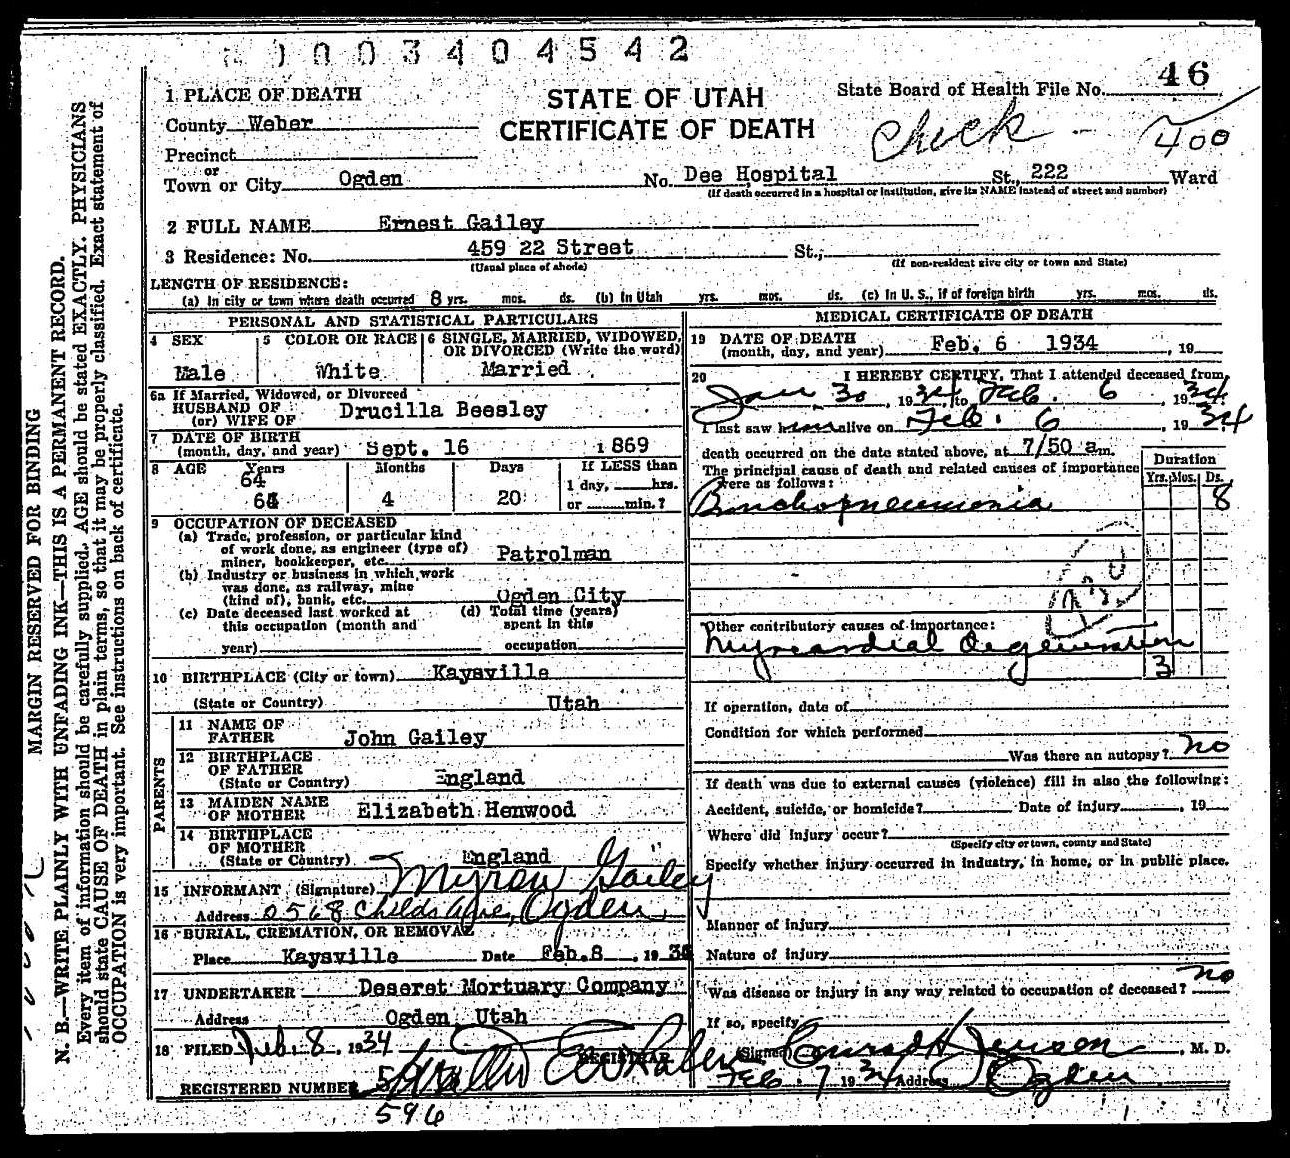 0003404542
1 PLACE OF DEATH
STATE OF UTAH
CERTIFICATE OF DEATH
State Board of Health File No. 46
County Weber
Check - 400
Precinct
or
Town or City Ogden No. Dee Hospital St., 222 Ward
(If death occurred in a hospital or institution, give its NAME instead of street and number)
2 FULL NAME Ernest Gailey
3 Residence: No. 459 22 Street St.,
(Usual place of abode) (If non-resident give city or town and State)
LENGTH OF RESIDENCE:
(a) In city or town where death occurred 8 yrs. mos. ds. (b) In Utah yrs. mos. ds. (c) In U. S., if of foreign birth yrs. mos. ds.
PERSONAL AND STATISTICAL PARTICULARS
4 SEX 5 COLOR OR RACE 6 SINGLE, MARRIED, WIDOWED,
OR DIVORCED (Write the word)
Male White Married
6a If Married, Widowed, or Divorced
HUSBAND OF
(or) WIFE OF Drucilla Beesley
7 DATE OF BIRTH
(month, day, and year) Sept. 16 1869
8 AGE Years Months Days If LESS than
64 1 day, hrs.
64 4 20 or min.?
9 OCCUPATION OF DECEASED
(a) Trade, profession, or particular kind
of work done, as engineer (type of)
miner, bookkeeper, etc. Patrolman
(b) Industry or business in which work
was done, as railway, mine
(kind of), bank, etc. Ogden City
(c) Date deceased last worked at (d) Total time (years)
this occupation (month and spent in this
year) occupation
10 BIRTHPLACE (City or town) Kaysville
(State or Country) Utah
PARENTS
11 NAME OF
FATHER John Gailey
12 BIRTHPLACE
OF FATHER
(State or Country) England
13 MAIDEN NAME
OF MOTHER Elizabeth Henwood
14 BIRTHPLACE
OF MOTHER
(State or Country) England "
15 INFORMANT (Signature) Myron Gailey
Address 2568 Childs Ave, Ogden
16 BURIAL, CREMATION, OR REMOVAL
Place Kaysville Date Feb.8 1934
17 UNDERTAKER Deseret Mortuary Company
Address Ogden, Utah
18 FILED Feb. 8, 1934
REGISTRAR
REGISTERED NUMBER
596
MEDICAL CERTIFICATE OF DEATH
19 DATE OF DEATH
(month, day, and year) Feb. 6 1934 , 19
20 I HEREBY CERTIFY, That I attended deceased from
Jan 30, 1934 to Feb. 6, 1934
I last saw him alive on Feb. 6, 1934
death occurred on the date stated above, at 7/50 a m.
The principal cause of death and related causes of importance
were as follows:
Duration
Yrs. Mos. Ds.
Bronchopneumonia 8
Other contributory causes of importance:
Myocardial Degeneration
3
If operation, date of
Condition for which performed
Was there an autopsy? no
If death was due to external causes (violence) fill in also the following:
Accident, suicide, or homicide? Date of injury , 19
Where did injury occur?
(Specify city or town, county and State)
Specify whether injury occurred in industry, in home, or in public place.
Manner of injury
Nature of injury
Was disease or injury in any way related to occupation of deceased? no
If so, specify
(Signed) Conrad H Jensen, M. D.
Feb. 7 1934 Address Ogden
MARGIN RESERVED FOR BINDING
N. B.—WRITE PLAINLY WITH UNFADING INK—THIS IS A PERMANENT RECORD.
Every item of information should be carefully supplied. AGE should be stated EXACTLY. PHYSICIANS
should state CAUSE OF DEATH in plain terms, so that it may be properly classified. Exact statement of
OCCUPATION is very important. See instructions on back of certificate.